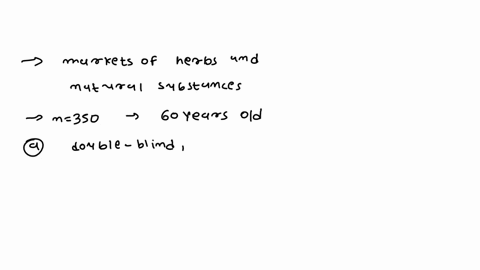 → markets of herbs and
natural substances
→ n=350 → 60 years old
ⓐ double-blind,